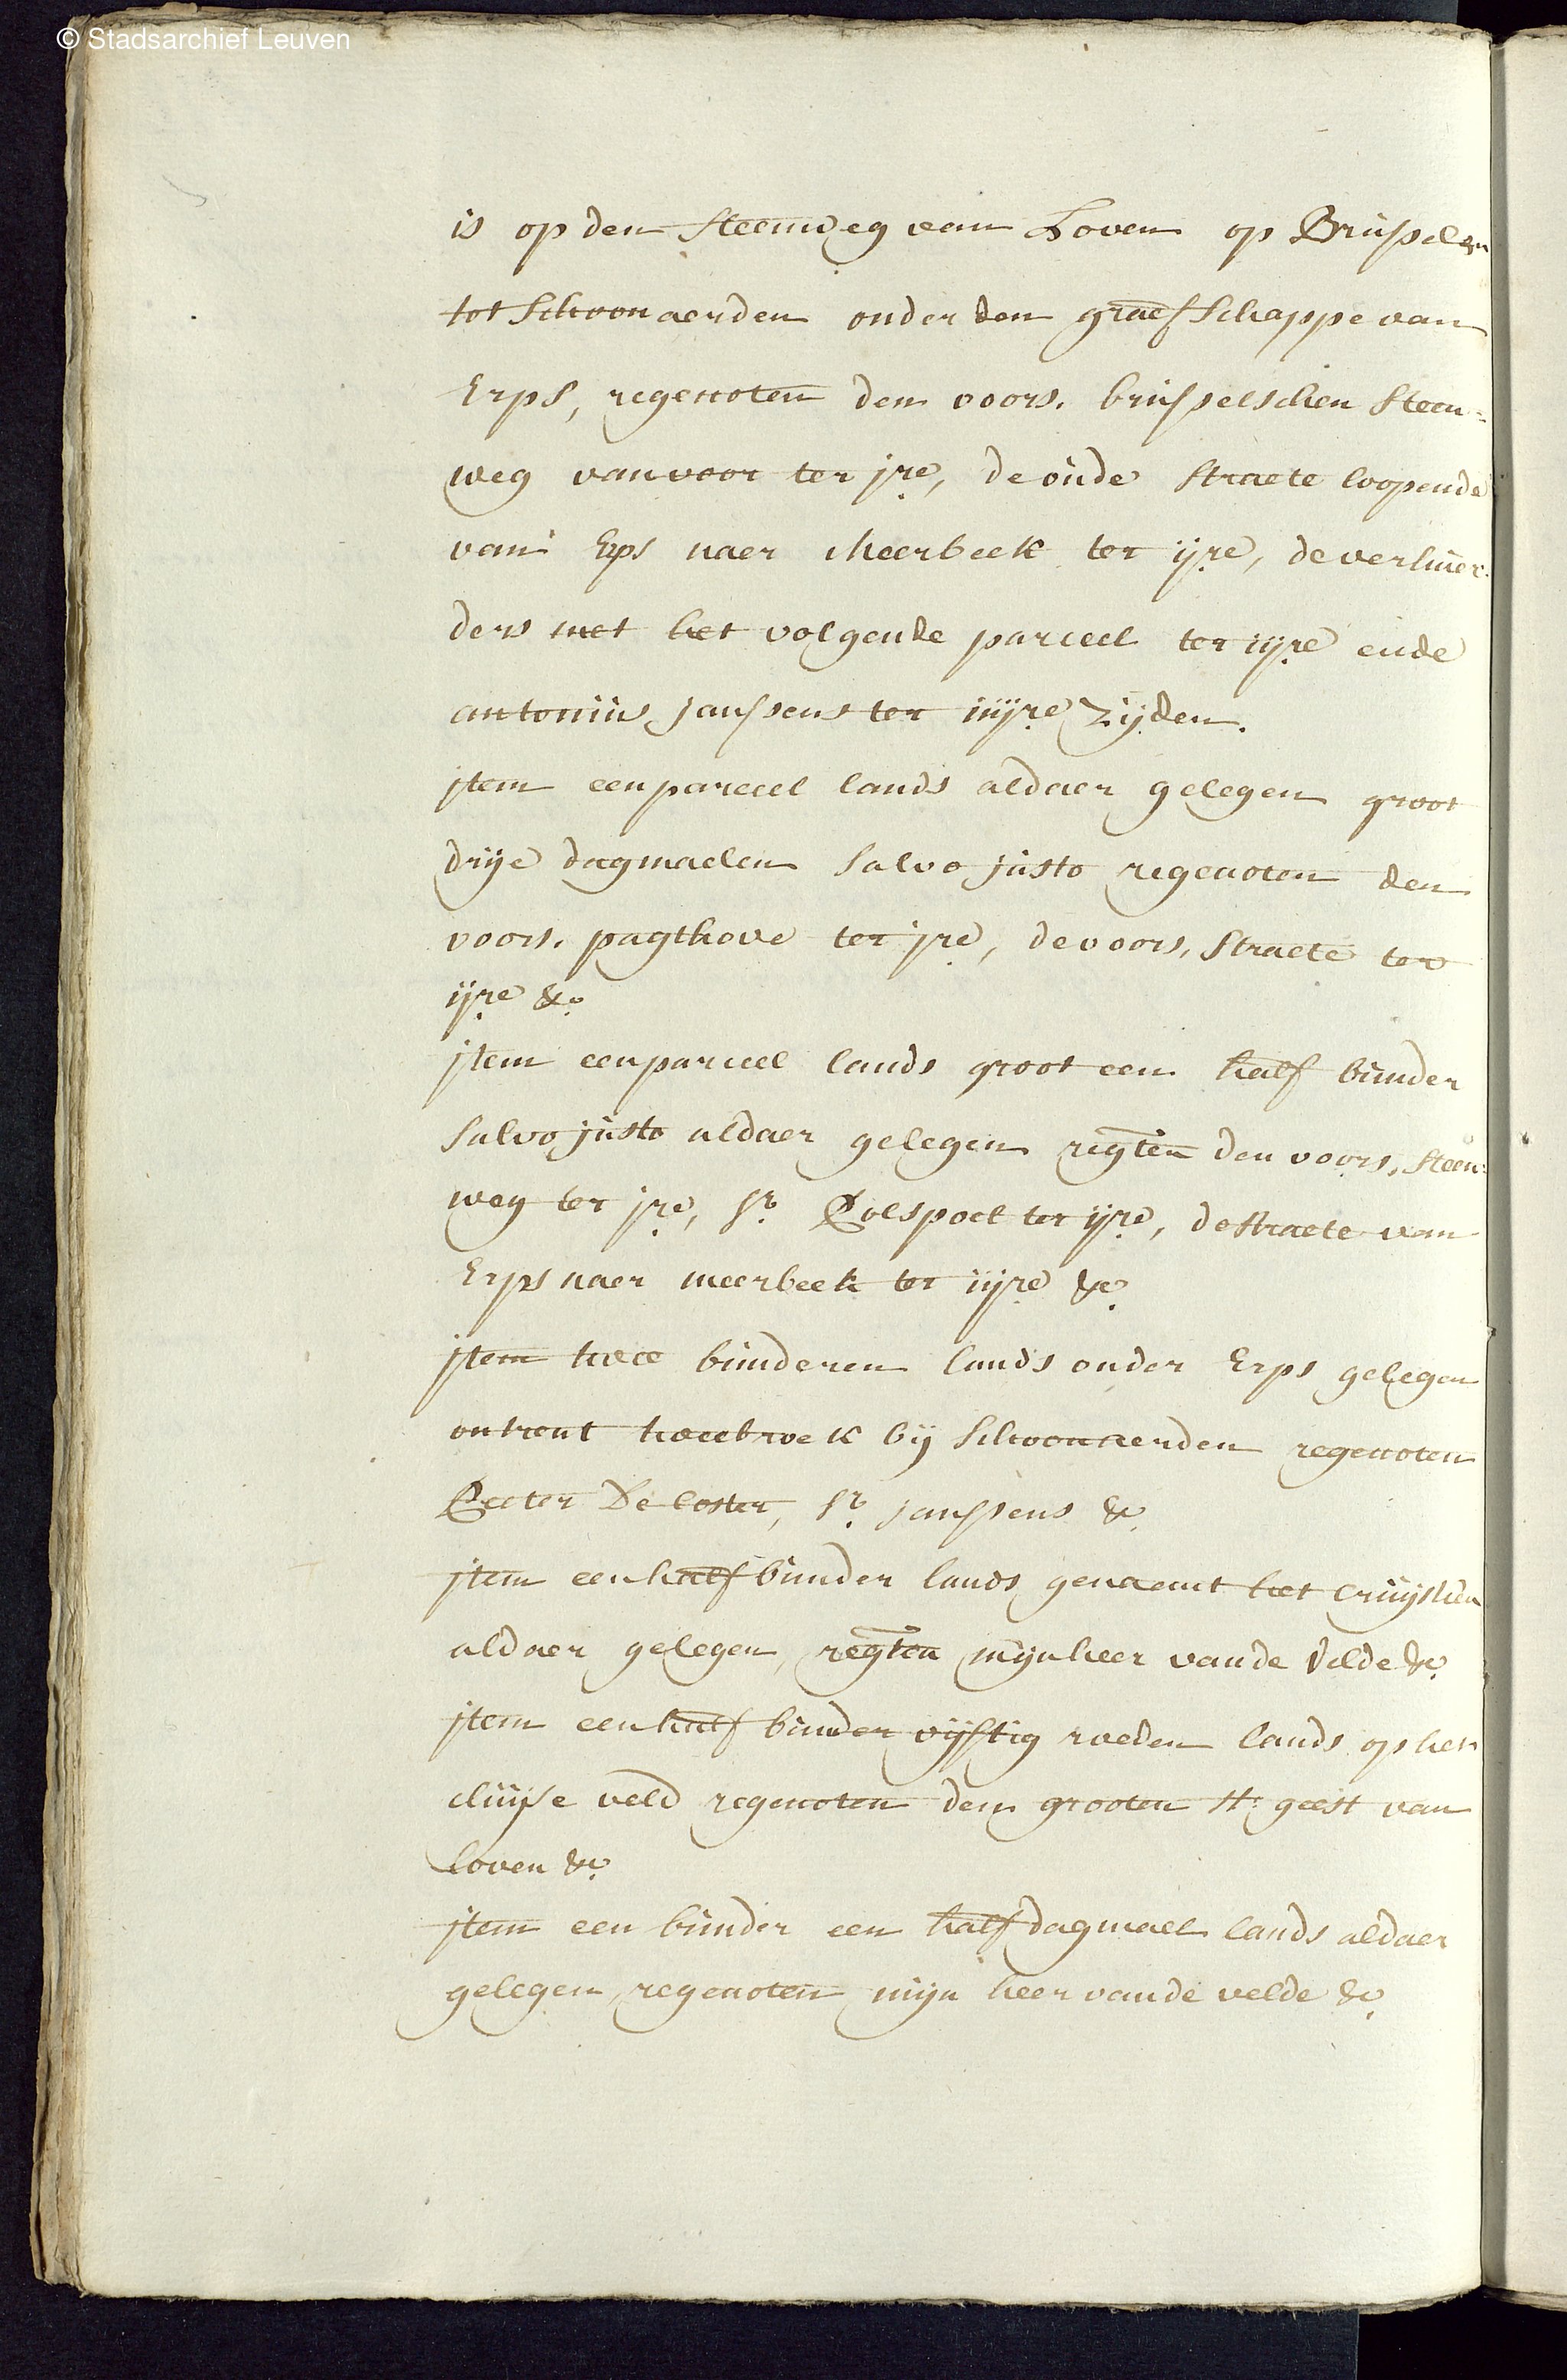 © Stadsarchief Leuven
is op den steenweg van Loven op Brussel en
tot Schoonaerden onder den graefschappe van
Erps, regenoten den voors. brusselschen steen=
weg van voor ter jre, de oude straete loopende
van Erps naer Meerbeek ter ijre, de verhuer=
ders met het volgende parceel ter iijre ende
antonius janssens ter iiijre zijden.
jtem een parceel lands aldaer gelegen groot
drije dagmaelen salvo justo regenoten den
voors. pagthove ter jre, de voors. straete ter
ijre &c
jtem een parceel lands groot een half bunder
salvo justo aldaer gelegen regten den voors. steen=
weg ter jre, Sr. Colspoel ter ijre, de straete van
Erps naer meerbeek ter iijre &c
jtem twee bunderen lands onder Erps gelegen
ontrent tweebroek bij Schoonaerden regenoten
Peeter De Coster, Sr. janssens &c
jtem een half bunder lands genaemt het cruijsken
aldaer gelegen, regten mijnheer vande Velde &c
jtem een half bunder vijftig roeden lands op het
cluijse veld regenoten den grooten H: geest van
loven &c
jtem een bunder een half dagmael lands aldaer
gelegen, regenoten mijn heer vande velde &c